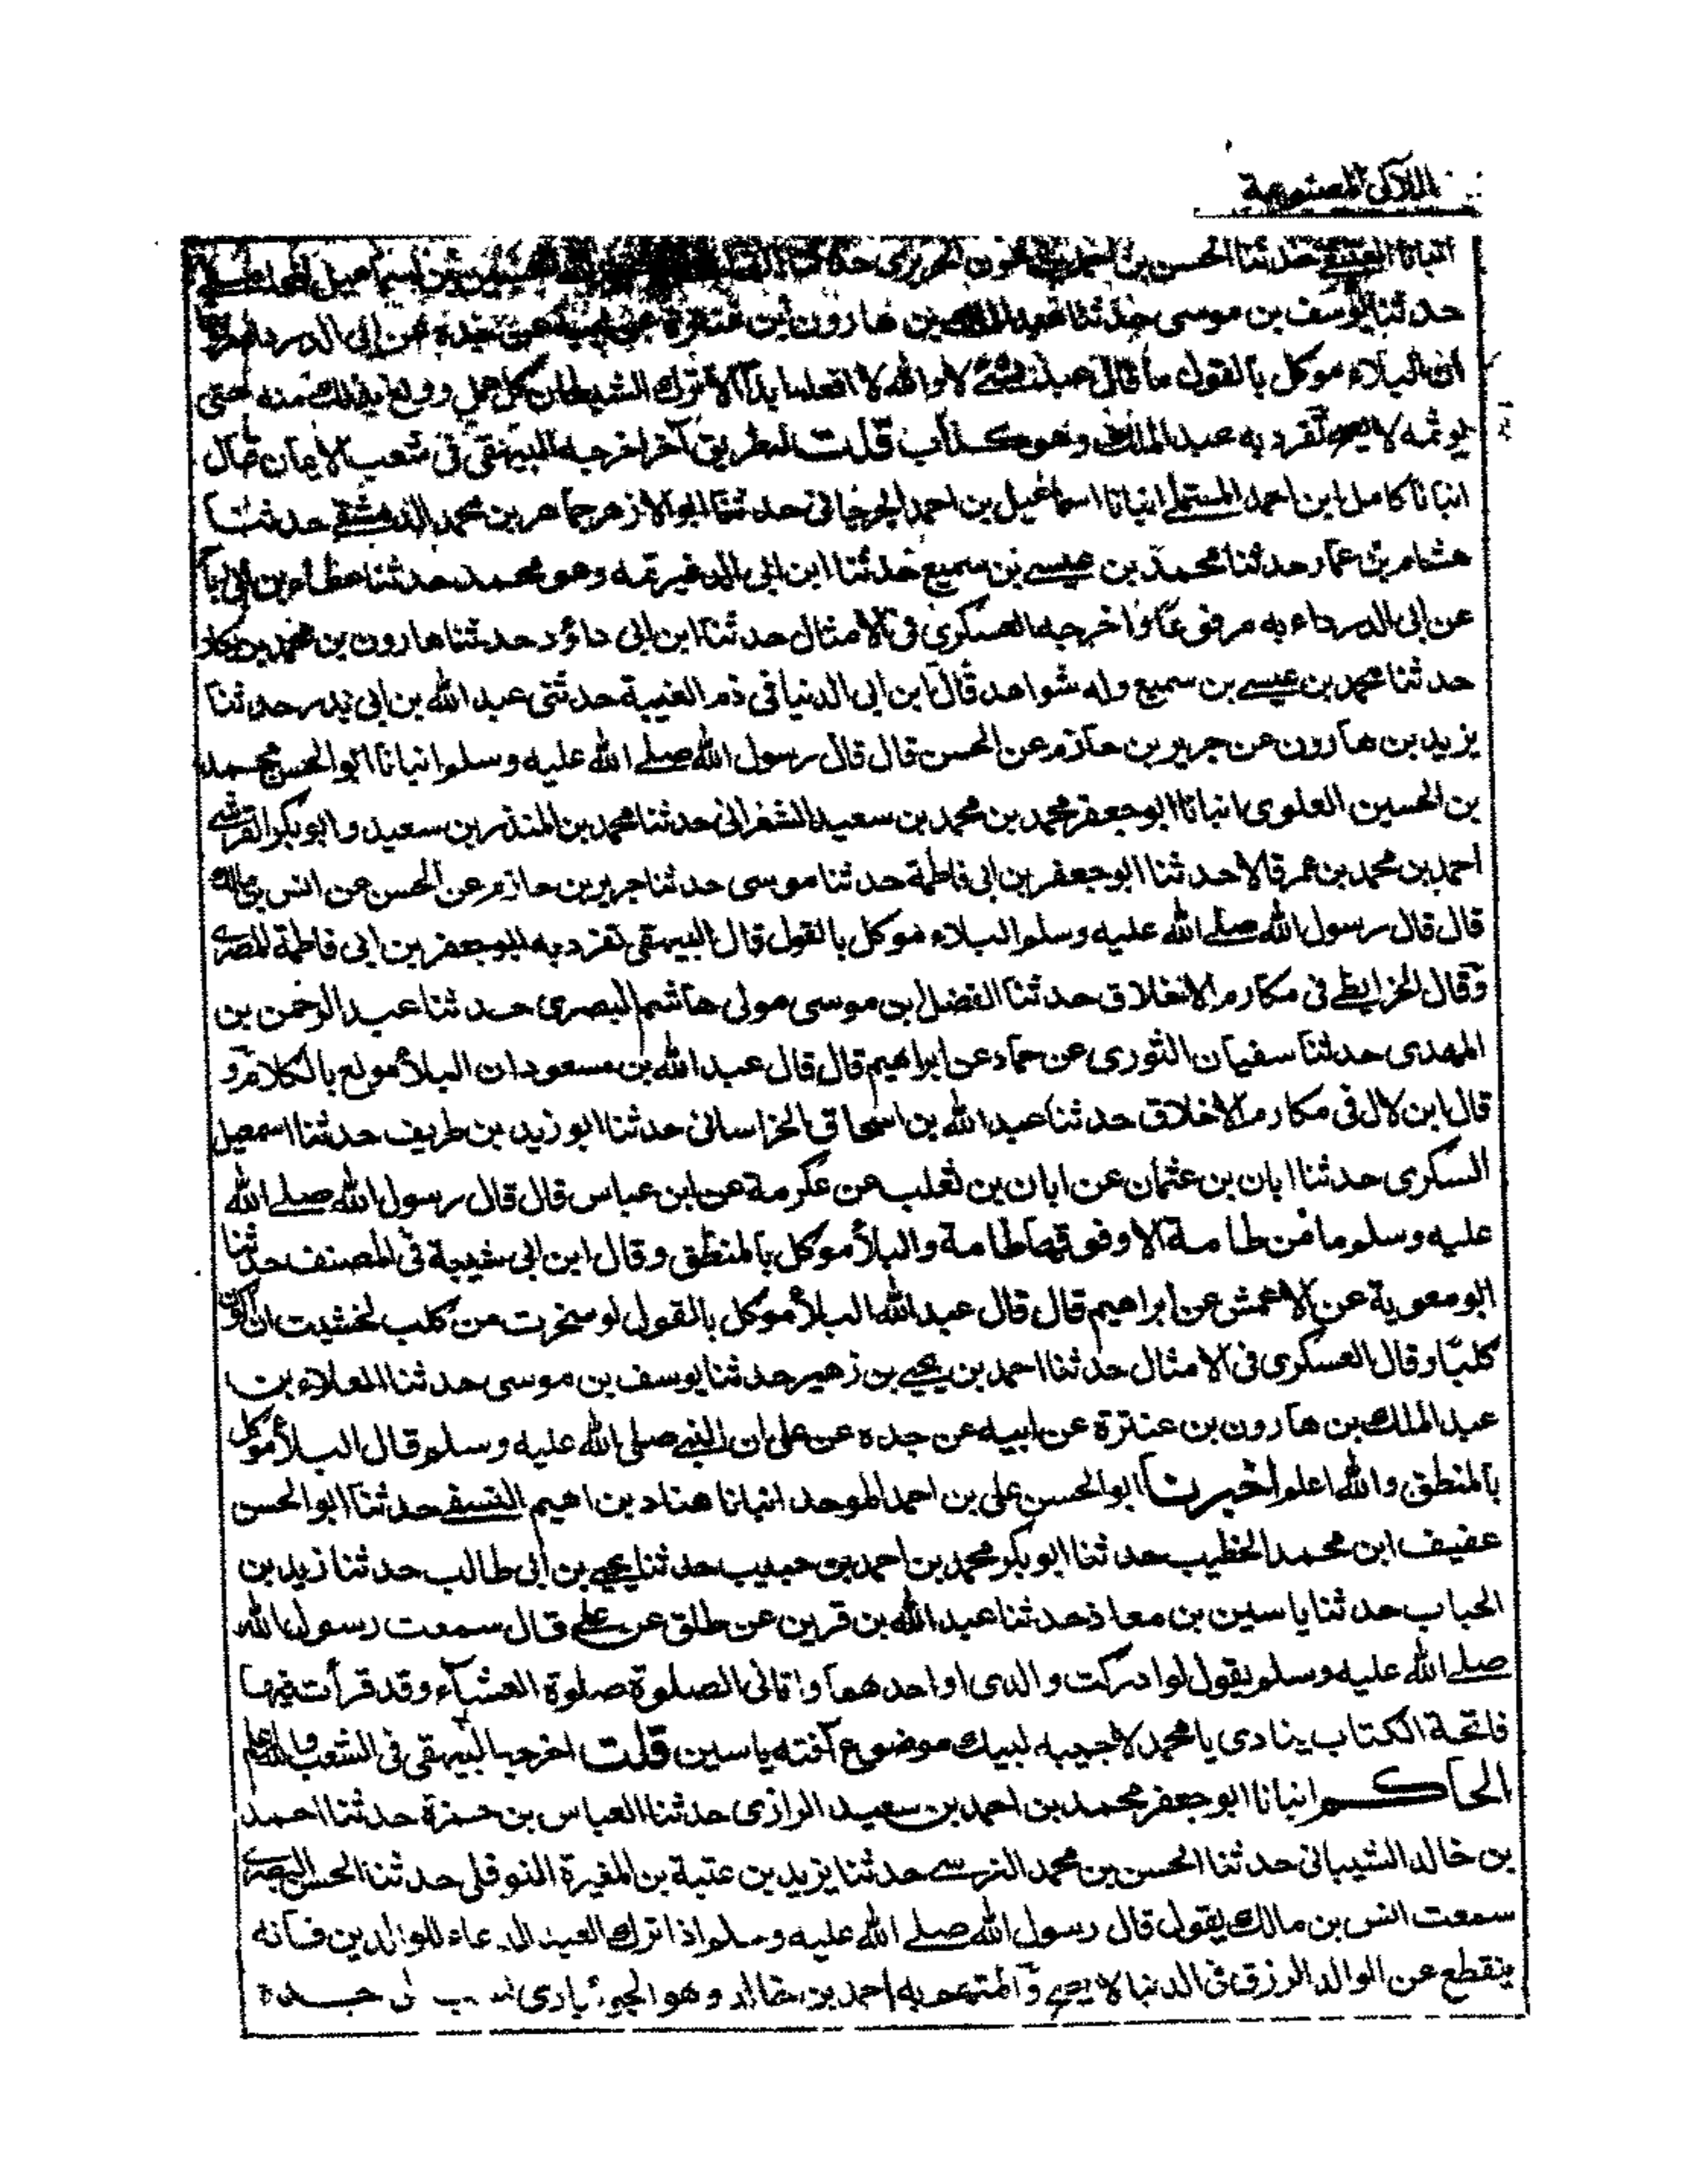 اللآلى المصنوعة
انبانا العتيقى حدثنا الحسن بن حدثنا بن اسماعيل
حدثنا يوسف بن موسى حدثنا عبد الملك بن هارون ابن عنترة عن ابيه عن جده عن ابى الدرداء
ان البلاء موكل بالقول ما قال عبد لشئ لا والله لا افعله ابدا الا ترك الشيطان كل عمل وولع بذلك منه حتى
يوثمه لا يصح تفرد به عبد الملك وهو كذاب قلت له طريق آخر اخرجه البيهقى فى شعب الايمان قال
انبانا كامل ابن احمد المستملے انبانا اسماعيل بن احمد الجرجانى حدثنا ابو الازهر جماهر بن محمد الدمشقے حدثنا
هشام بن عمار حدثنا محمد بن عيسے بن سميع حدثنا ابن ابى الزعيزعة وهو محمد حدثنا عطاء بن ابى رباح
عن ابى الدرداء به مرفوعا واخرجه العسكرى فى الامثال حدثنا ابن ابى داؤد حدثنا هارون بن محمد بن بكار
حدثنا محمد بن عيسے بن سميع وله شواهد قال ابن ابى الدنيا فى ذم الغيبة حدثنى عبد الله بن ابى بدر حدثنا
يزيد بن هارون عن جرير بن حازم عن الحسن قال قال رسول الله صلے الله عليه وسلم انبانا ابو الحسن محمد
بن الحسين العلوى انبانا ابو جعفر محمد بن محمد بن سعيد الشغرانى حدثنا محمد بن المنذر بن سعيد وابو بكر القرشے
احمد بن محمد بن عمر قالا حدثنا ابو جعفر بن ابى فاطمة حدثنا موسى حدثنا جرير بن حازم عن الحسن عن انس بن مالك
قال قال رسول الله صلے الله عليه وسلم البلاء موكل بالقول قال البيهقى تفرد به ابو جعفر بن ابى فاطمة المصرى
وقال الخرايطے فى مكارم الاخلاق حدثنا الفضل بن موسى مولى هاشم البصرى حدثنا عبد الرحمن بن
المهدى حدثنا سفيان الثورى عن حماد عن ابراهيم قال قال عبد الله بن مسعود ان البلأ مولع بالكلام و
قال ابن لال فى مكارم الاخلاق حدثنا عبد الله بن اسحاق الخراسانى حدثنا ابو زيد بن طريف حدثنا اسمعيل
السكرى حدثنا ابان بن عثمان عن ابان بن تغلب عن عكرمة عن ابن عباس قال قال رسول الله صلے الله
عليه وسلم ما من طامة الا وفوقها طامة والبلأ موكل بالمنطق وقال ابن ابى شيبة فى المصنف حدثنا
ابو معوية عن الاعمش عن ابراهيم قال قال عبد الله البلأ موكل بالقول لو سخرت من كلب لخشيت ان اكون
كلبا وقال العسكرى فى الامثال حدثنا احمد بن يحيے بن زهير حدثنا يوسف بن موسى حدثنا العلاء بن
عبد الملك بن هارون بن عنترة عن ابيه عن جده عن على ان النبے صلى الله عليه وسلم قال البلأ موكل
بالمنطق والله اعلم اخبرنا ابو الحسن على بن احمد الموحد انبانا هناد بن اهيم النسفے حدثنا ابو الحسن
عفيف ابن محمد الخطيب حدثنا ابو بكر محمد بن احمد بن حبيب حدثنا يحيے بن ابى طالب حدثنا زيد بن
الحباب حدثنا ياسين بن معاذ حدثنا عبد الله بن قرين عن طلق عن علے قال سمعت رسول الله
صلے الله عليه وسلم يقول لو ادركت والدى او احدهما واتانى الصلوة صلوة العشاء وقد قرأت فيها
فاتحة الكتاب ينادى يا محمد لاجيبه لبيك موضوع آفته ياسين قلت اخرجه البيهقى فى الشعب والله اعلم
الحاكم انبانا ابو جعفر محمد بن احمد بن سعيد الرازى حدثنا العباس بن حمزة حدثنا احمد
بن خالد الشيبانى حدثنا الحسن بن محمد النرسے حدثنا يزيد بن عتبة بن المغيرة النوفلى حدثنا الحسن البصرى
سمعت انس بن مالك يقول قال رسول الله صلے الله عليه وسلم اذا ترك العبد الدعاء للوالدين فانه
ينقطع عن الوالد الرزق فى الدنيا لا يصح والمتهم به احمد بن خالد وهو الجويبارى